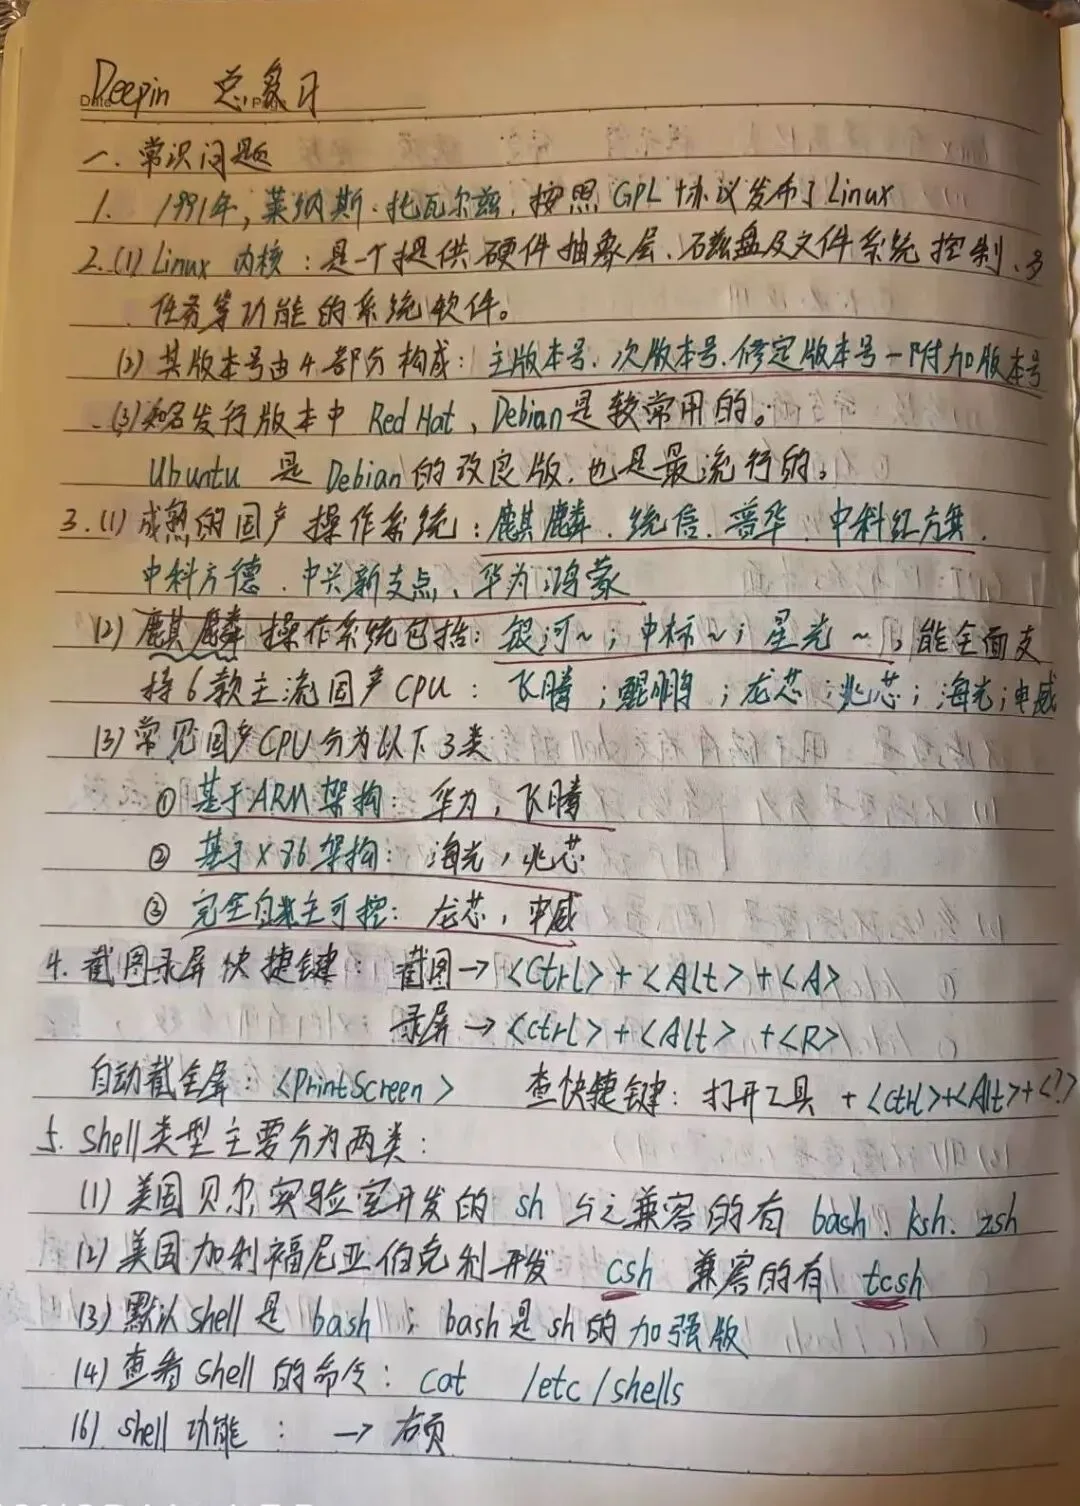 Deepin 总复习
一. 常识问题
1. 1991年, 莱纳斯·托瓦尔兹, 按照 GPL 协议发布了 Linux
2.(1) Linux 内核：是一个提供硬件抽象层、磁盘及文件系统控制、多
任务等功能的系统软件。
(2) 其版本号由4部分构成：主版本号.次版本号.修定版本号-附加版本号
(3)知名发行版本中 Red Hat、Debian是较常用的。
Ubuntu 是 Debian的改良版，也是最流行的。
3.(1)成熟的国产操作系统：麒麟、统信、普华、中科红方舟、
中科方德、中兴新支点、华为鸿蒙
(2) 麒麟操作系统包括：银河~；中标~；星光~，能全面支
持6款主流国产CPU：飞腾；鲲鹏；龙芯；兆芯；海光；申威
(3)常见国产CPU分为以下3类
① 基于ARM架构：华为，飞腾
② 基于X86架构：海光，兆芯
③ 完全自主可控：龙芯，申威
4.截图录屏快捷键：截图→<Ctrl>+<Alt>+<A>
录屏→<ctrl>+<Alt>+<R>
自动截全屏：<PrintScreen> 查快捷键：打开工具+<ctrl>+<Alt>+<?>
5. Shell类型主要分为两类：
(1) 美国贝尔实验室开发的 sh 与之兼容的有 bash、ksh、zsh
(2)美国加利福尼亚伯克利开发 csh 兼容的有 tcsh
(3) 默认shell是 bash；bash是sh的加强版
(4)查看shell的命令：cat /etc/shells
(6) shell功能：→右页